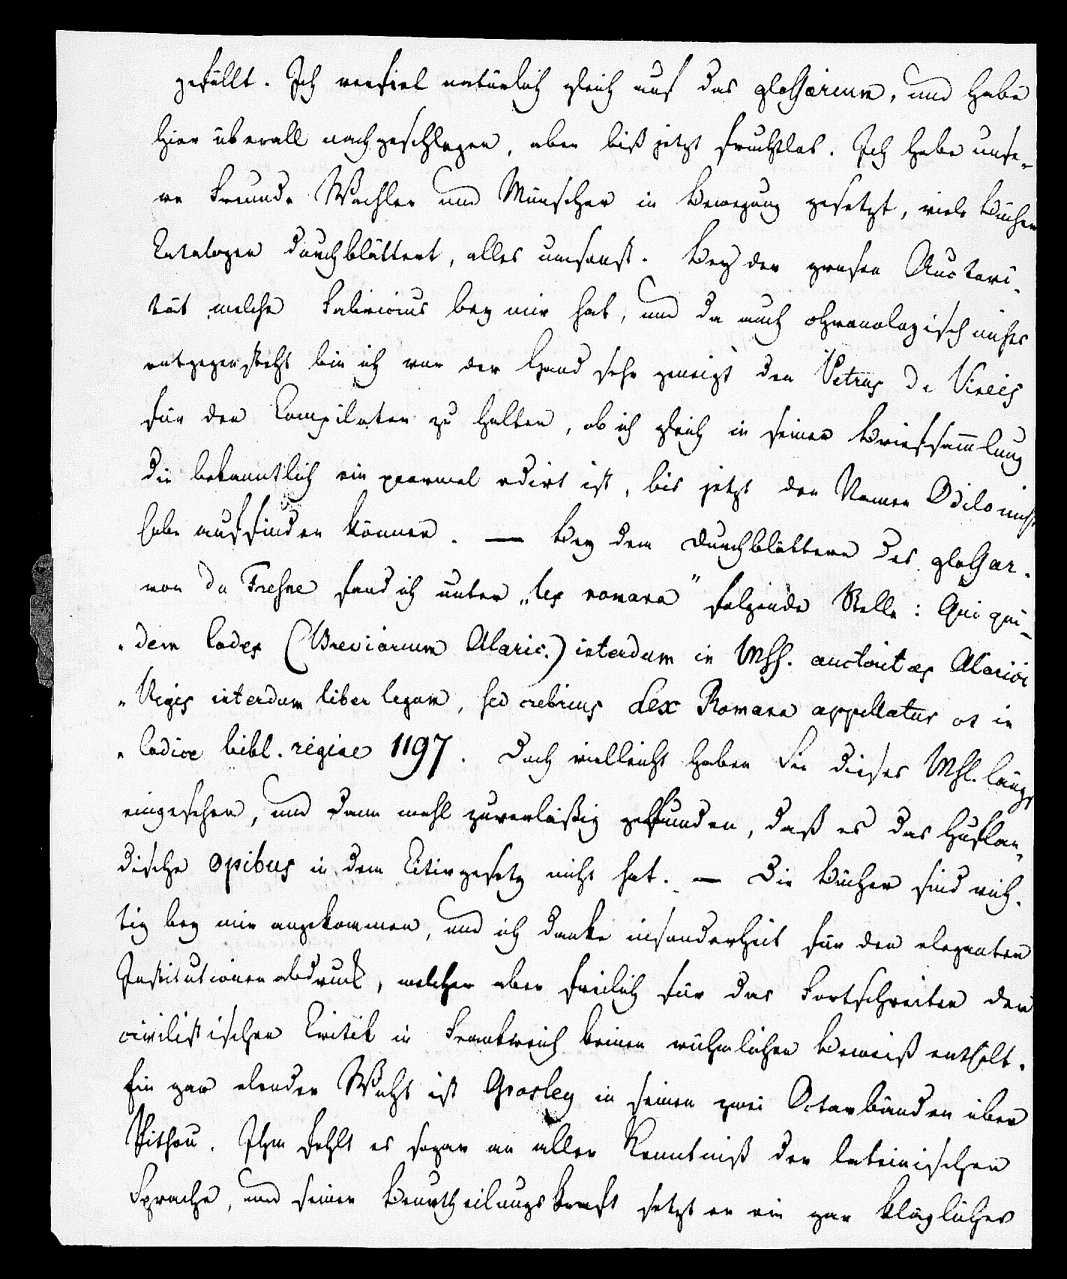 gefüllt. Ich verfiel natürlich gleich auf das glossarium, und habe
hier überall nachgeschlagen, aber biß jetzt fruchtlos. Ich habe unse-
re Freunde Wachler und Münscher in Bewegung gesetzt, viele Bücher
Cataloge durchblättert, alles umsonst. Bey der grosen Auctori-
tät welche Fabricius bey mir hat, und da auch chronologisch nichts
entgegensteht bin ich vor der Hand sehr geneigt den Petrus de Vineis
für den Compilator zu halten, ob ich gleich in seiner Briefsammlung
die bekanntlich ein paarmal edirt ist, bis jetzt den Namen Odilo nicht
habe auffinden können. — Bey dem Durchblättern des glossar.
von du Fresne fand ich unter „lex romana" folgende Stelle: Qui qui-
„dem Codex (Breviarium Alaric.) interdum in Mss. auctoritas Alarici
„Regis interdum liber legum, sed crebrius Lex Romana appellatur ut in
„Codice bibl. regiae 1197. Doch vielleicht haben Sie dieses Mss. längst
eingesehen, und dann wohl zuverläßig gefunden, daß es das Hufelan-
dische opibus in dem Citirgesetz nicht hat. — Die Bücher sind rich-
tig bey mir angekommen, und ich danke insonderheit für den eleganten
Institutionenabdruck, welcher aber freilich für das Fortschreiten der
civilistischen Critik in Frankreich keinen rühmlichen Beweiß enthält.
Ein gar elender Wicht ist Grosley in seinen zwei Octavbänden über
Pithou. Ihm fehlt es sogar an aller Kenntniß der lateinischen
Sprache, und seiner Beurtheilungskraft setzt er ein gar klägliches